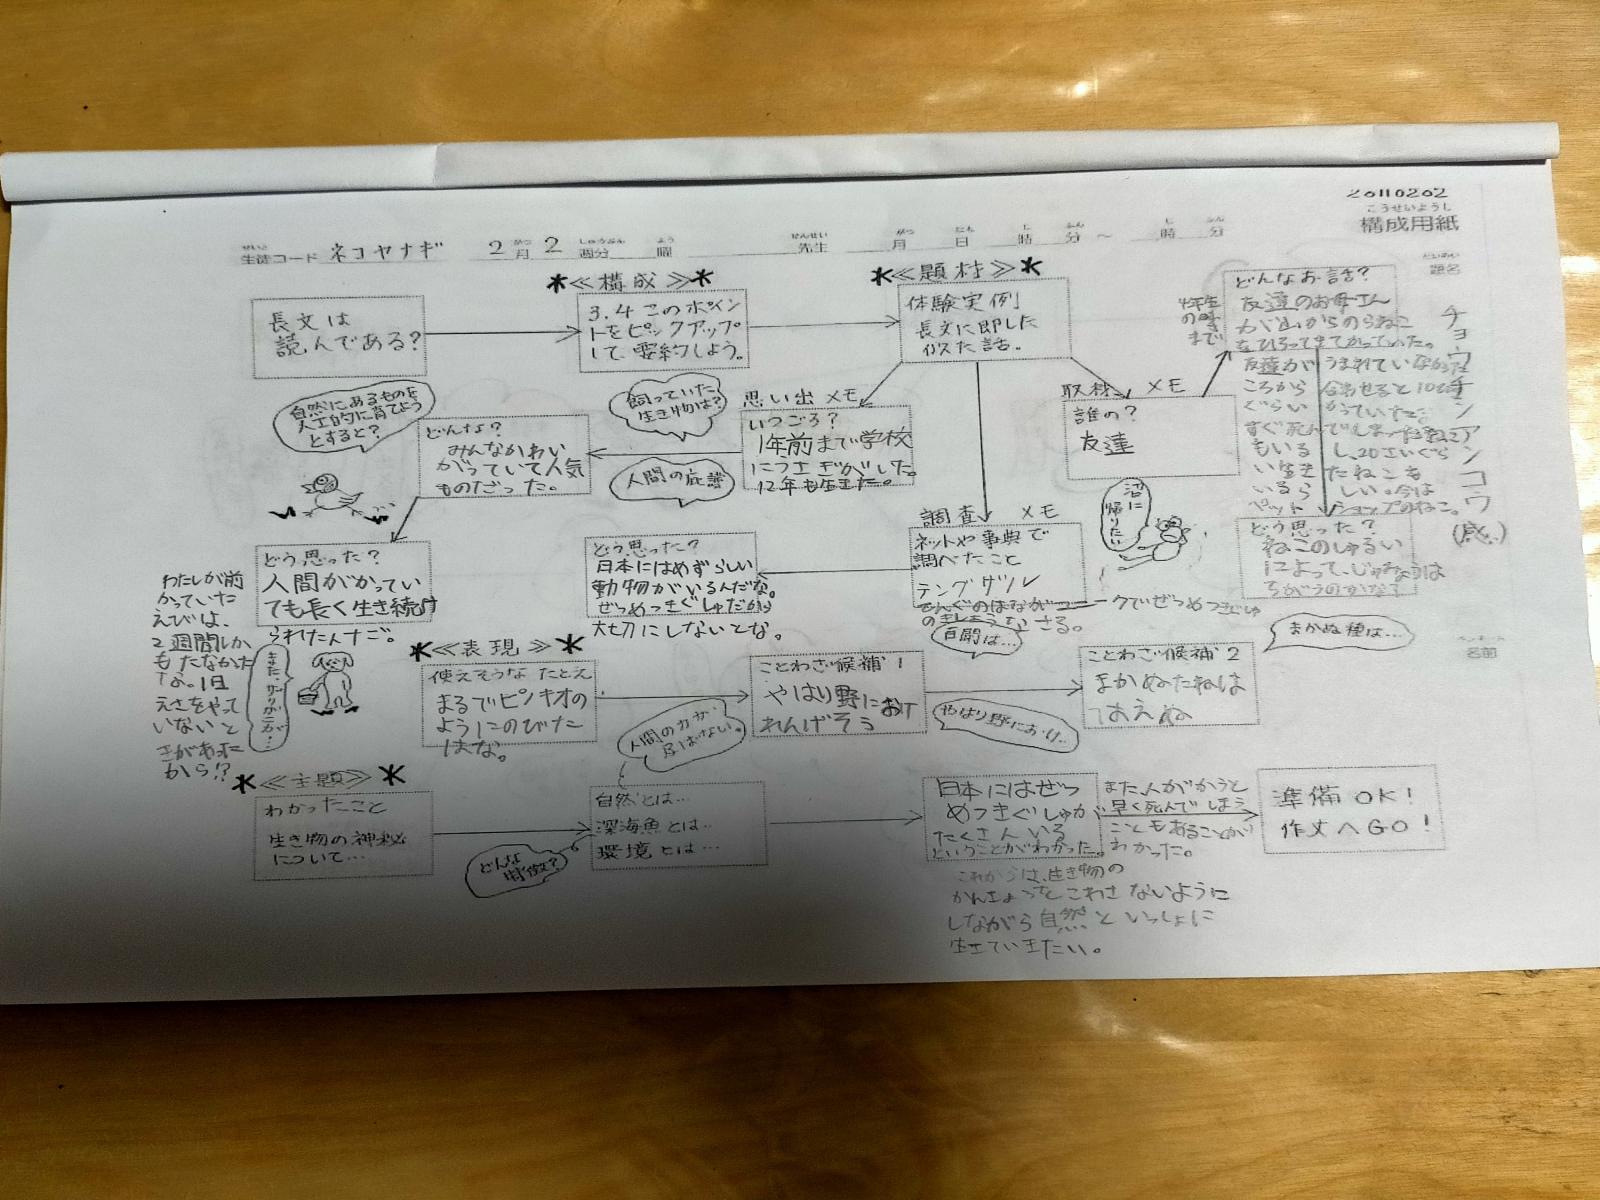 20110202
構成用紙
こうせいようし
生徒コード ネコヤナギ 2月2週分 曜 先生 月 日 時 分 〜 時 分
題名
チョウチンアンコウ(感)
*≪構成≫*
*≪題材≫*
長文は
読んである?
3.4このポイン
トをピックアップ
して、要約しよう。
体験実例
長文に即した
似た話。
4年生
の時
まで
どんなお話?
友達のお母さん
が山からのらねこ
をひろってきてかっていた。
友達がうまれていなかった
ころから合わせると10ぴき
ぐらいかっていた
すぐ死んでしまったねこ
もいるし、20さいぐら
い生きたねこも
いるらしい。今は
ペットショップのねこ。
自然にあるものを
人工的に育てよう
とすると?
飼っていた
生き物は?
思い出メモ
いつごろ?
1年前まで学校
にウサギがいた。
12年も生きた。
取材メモ
誰の?
友達
どんな?
みんなかわい
がっていて人気
ものだった。
人間の庇護
沼に
帰りたい
調査メモ
ネットや事典で
調べたこと
テングザル
どう思った?
ねこのしゅるい
によって、じゅみょうは
ちがうのかな?
どう思った?
人間がかってい
ても長く生き続け
られたんだ。
どう思った?
日本にはめずらしい
動物がいるんだな。
ぜつめつきぐしゅだから
大切にしないとな。
わたしが前
かっていた
えびは、
2週間しか
もたなかった
な。1日
えさをやって
いないと
きがあった
から!?
百聞は…
まかぬ種は…
ペンネーム
名前
*≪表現≫*
使えそうなたとえ
まるでピノキオの
ようにのびた
はな。
ことわざ候補1
やはり野におけ
れんげそう
ことわざ候補2
まかぬたねは
はえぬ
人間の力が
及ばない。
やはり野におけ…
*≪主題≫*
わかったこと
生き物の神秘
について…
どんな
特徴?
自然とは…
深海魚とは…
環境とは…
日本にはぜつ
めつきぐしゅが
たくさんいる
ということがわかった。
また、人がかうと
早く死んでしまう
こともあることが
わかった。
これからは、生き物の
かんきょうをこわさないように
しながら自然といっしょに
生きていきたい。
準備OK!
作文へGO!